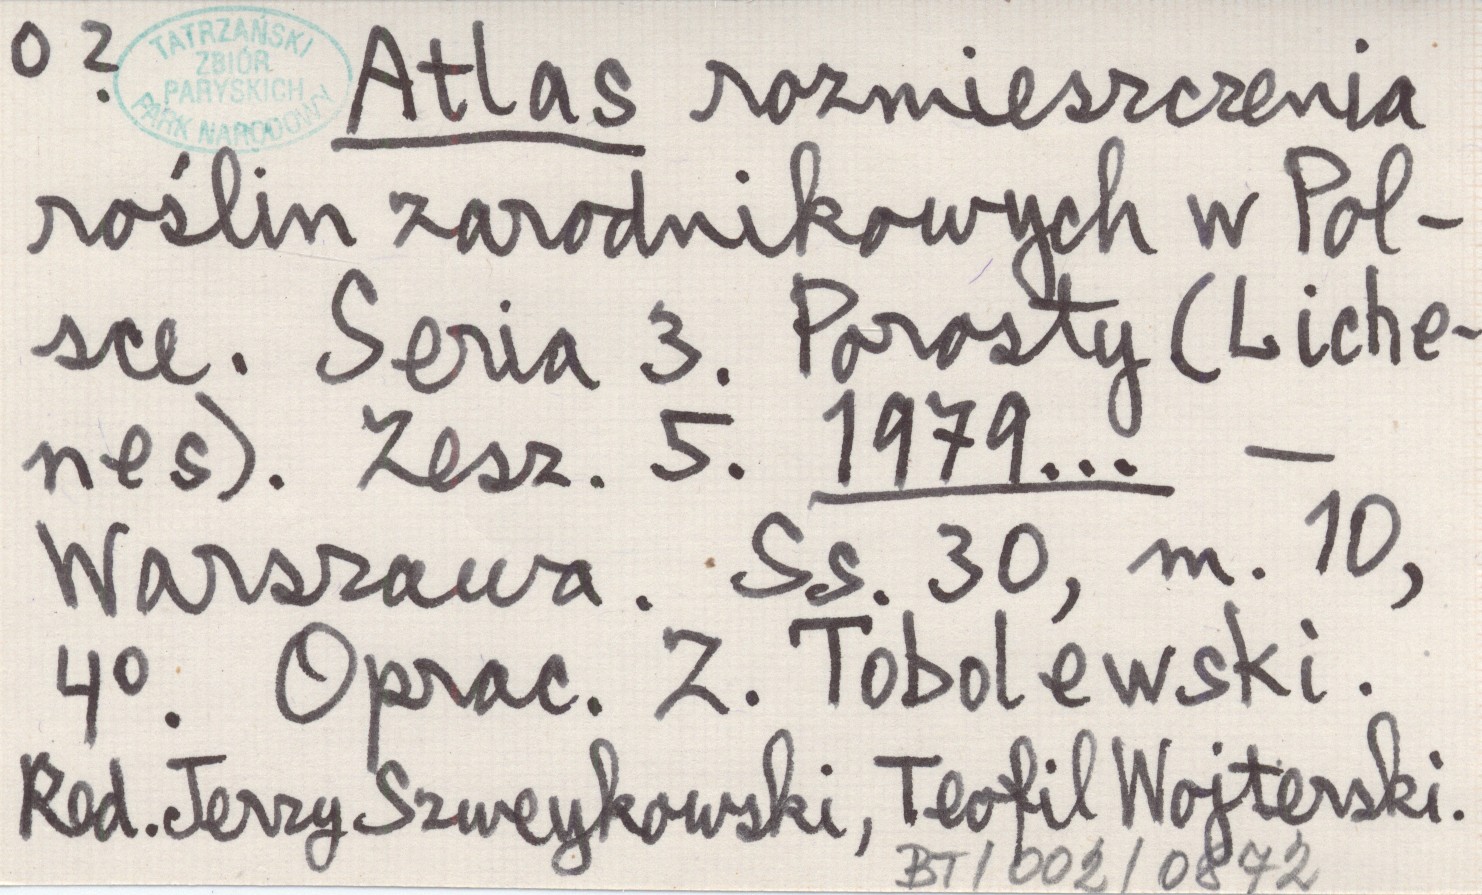 0 2.
TATRZAŃSKI
ZBIÓR
PARYSKICH
PARK NARODOWY
Atlas rozmieszczenia
roślin zarodnikowych w Pol-
sce. Seria 3. Porosty (Liche-
nes). Zesz. 5. 1979... —
Warszawa. Ss. 30, m. 10,
4º. Oprac. Z. Tobolewski.
Red. Jerzy Szweykowski, Teofil Wojterski.
BT/002/0872